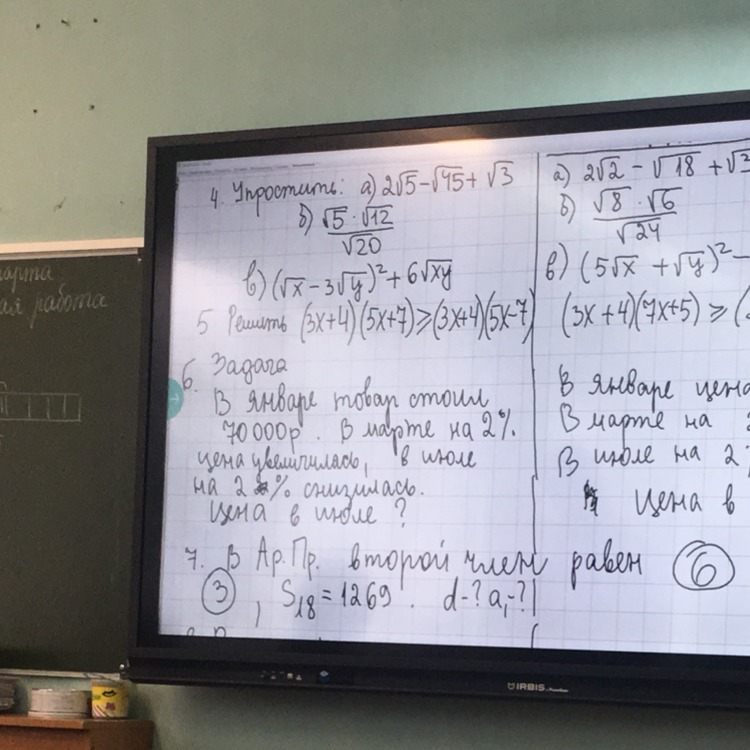 4. Упростить: а) 2√5-√45+√3
б) √5·√12/√20
в) (√x-3√y)²+6√xy
5 Решить (3x+4)(5x+7)≥(3x+4)(5x-7)
6. Задача
В январе товар стоил
70000р. В марте на 2%
цена увеличилась, в июле
на 2% снизилась.
Цена в июле?
7. В Ар.Пр. второй член равен
3, S₁₈=1269. d-? a₁-?
а) 2√2-√18+√
б) √8·√6/√24
в) (5√x+√y)²-
(3x+4)(7x+5)≥(
В январе цена
В марте на
В июле на 2
Цена в
6
марта
ая работа
IRBIS